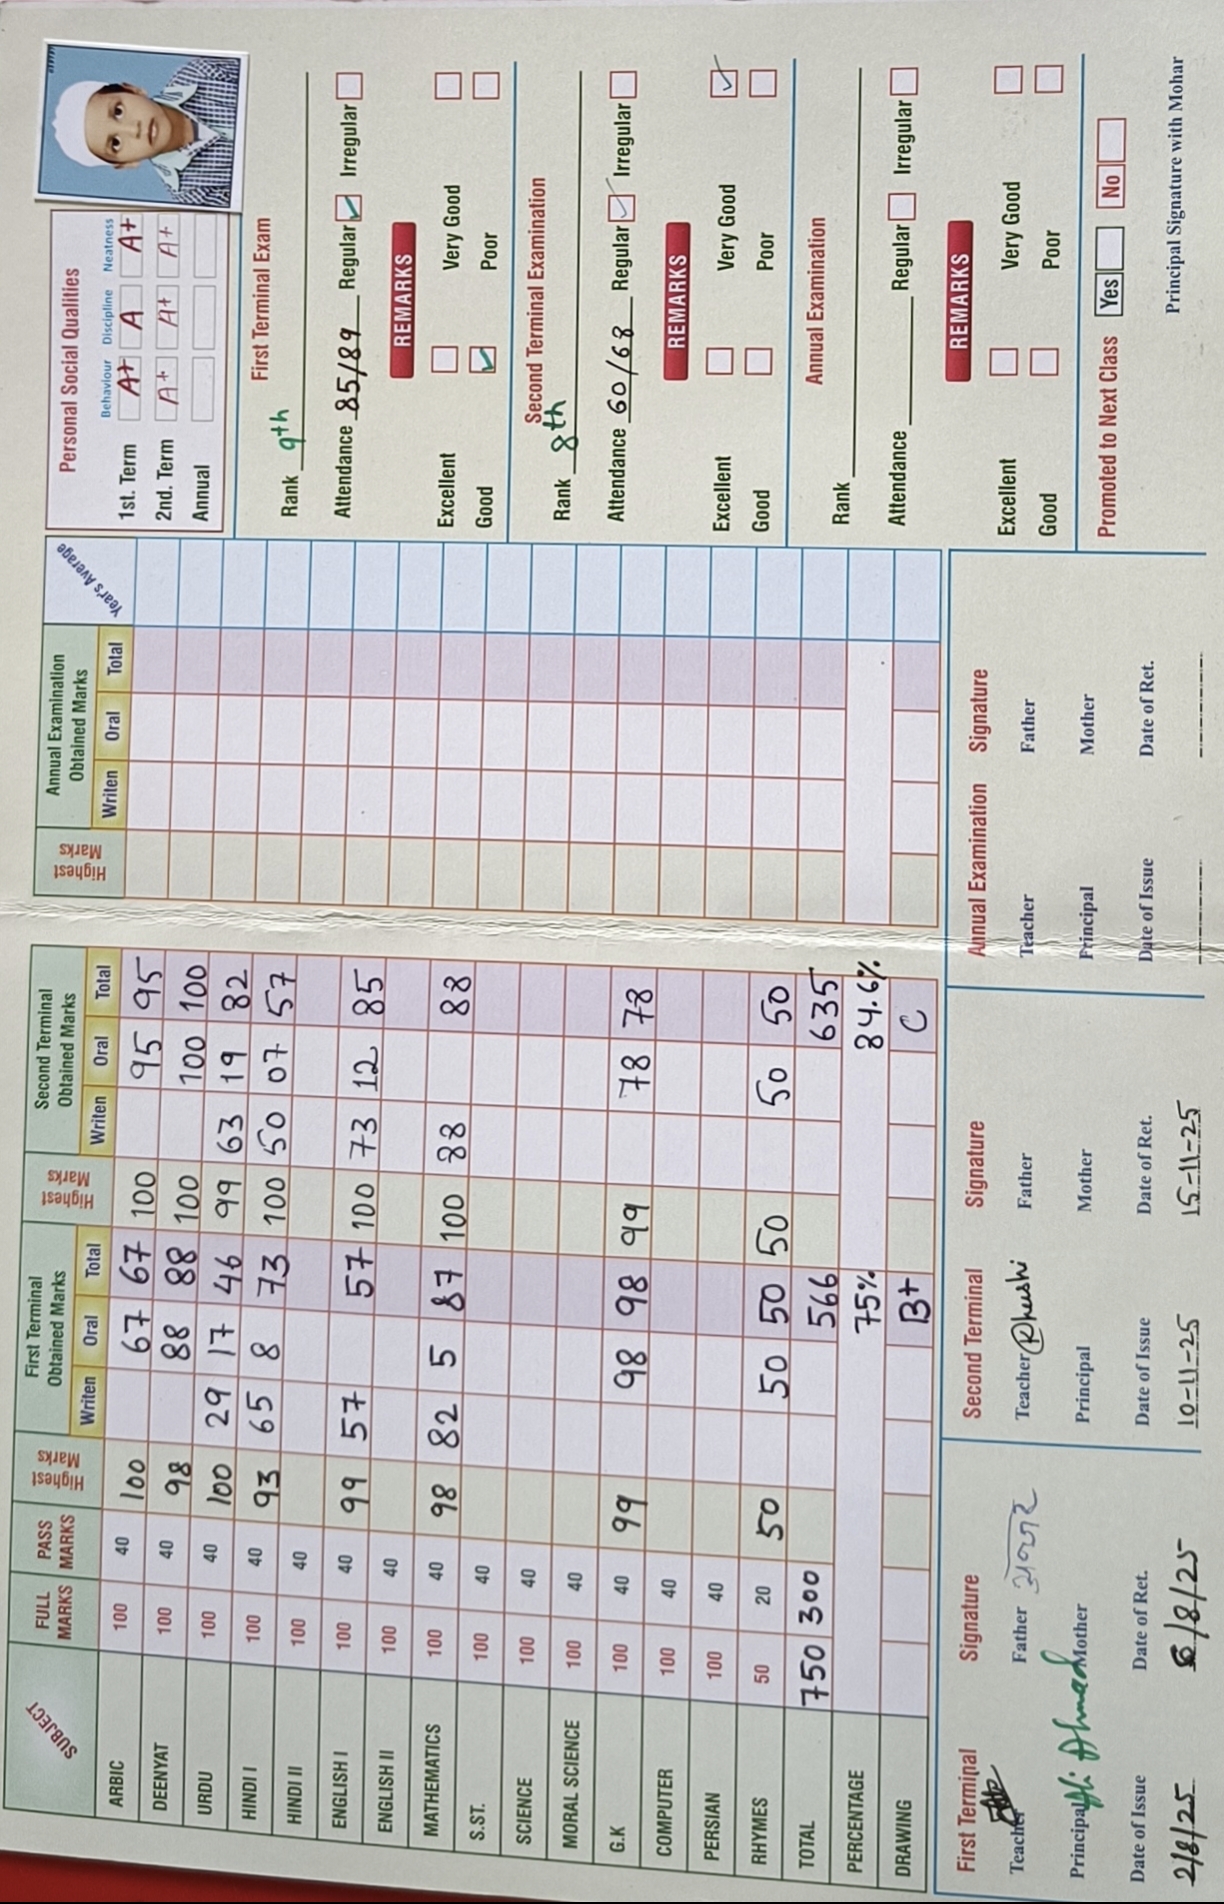 SUBJECT FULL MARKS PASS MARKS Highest Marks First Terminal Obtained Marks Writen Oral Total Highest Marks Second Terminal Obtained Marks Writen Oral Total Highest Marks Annual Examination Obtained Marks Writen Oral Total Year's Average
ARBIC 100 40 100 67 67 100 95 95
DEENYAT 100 40 98 88 88 100 100 100
URDU 100 40 100 29 17 46 99 63 19 82
HINDI I 100 40 93 65 8 73 100 50 07 57
HINDI II 100 40
ENGLISH I 100 40 99 57 57 100 73 12 85
ENGLISH II 100 40
MATHEMATICS 100 40 98 82 5 87 100 88 88
S.ST. 100 40
SCIENCE 100 40
MORAL SCIENCE 100 40
G.K 100 40 99 98 98 99 78 78
COMPUTER 100 40
PERSIAN 100 40
RHYMES 50 20 50 50 50 50 50 50
TOTAL 750 300 566 635
PERCENTAGE 75% 84.6%
DRAWING B+ C
Personal Social Qualities
Behaviour Discipline Neatness
1st. Term A+ A A+
2nd. Term A+ A+ A+
Annual
First Terminal Exam
Rank 9th
Attendance 85/89 Regular Irregular
REMARKS
Excellent Very Good
Good Poor
Second Terminal Examination
Rank 8th
Attendance 60/68 Regular Irregular
REMARKS
Excellent Very Good
Good Poor
Annual Examination
Rank
Attendance Regular Irregular
REMARKS
Excellent Very Good
Good Poor
Promoted to Next Class Yes No
Principal Signature with Mohar
First Terminal Signature
Teacher Father अनवर
Principal Ali Ahmad Mother
Date of Issue Date of Ret.
2/8/25 6/8/25
Second Terminal Signature
Teacher Khushi Father
Principal Mother
Date of Issue Date of Ret.
10-11-25 15-11-25
Annual Examination Signature
Teacher Father
Principal Mother
Date of Issue Date of Ret.